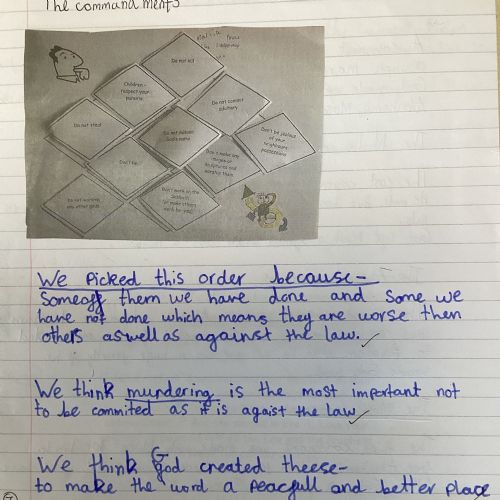 The commandments
Do not kill
Children -
respect your
parents
Do not commit
adultery
Do not steal
Do not misuse
God's name
Don't be jealous
of your
neighbours
possessions
Don't lie
Don't make any
images or
sculptures and
worship them
Do not worship
any other gods
Don't work on the
Sabbath
(or make others
work for you)
We picked this order because-
Someoff them we have done and some we
have not done which means they are worse then
others aswell as against the law.
We think murdering is the most important not
to be commited as it is agaist the law
We think God created theese-
to make the word a peacfull and better place